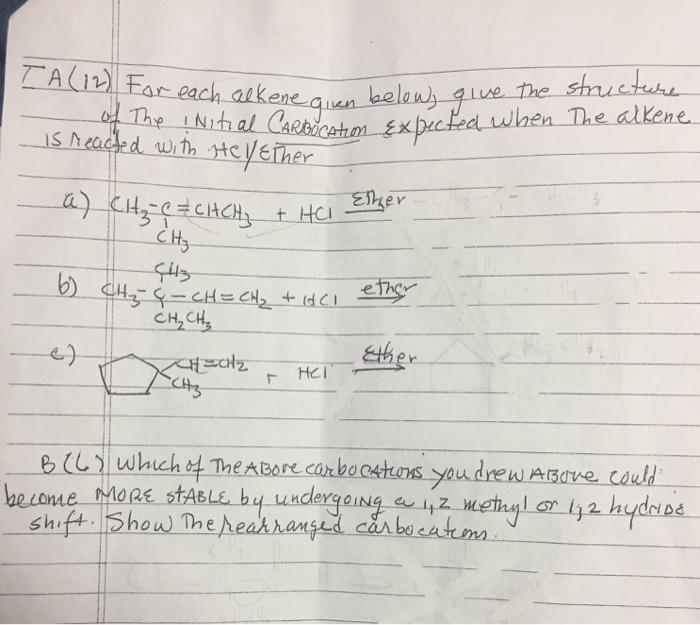 I A(12) For each alkene given below, give the structure
of The iNitial CARBOCAtion Expected when The alkene
is reacted with HCl/Ether
a) CH3-C=CHCH3 + HCl Ether
CH3
CH3
b) CH3-C-CH=CH2 + HCl ether
CH2CH3
c) CH=CH2 + HCl Ether
CH3
B(6) Which of The ABove carbocAtions you drew ABove could
become MORE StABLE by undergoing a 1,2 methyl or 1,2 hydride
shift. Show The rearranged carbocations.